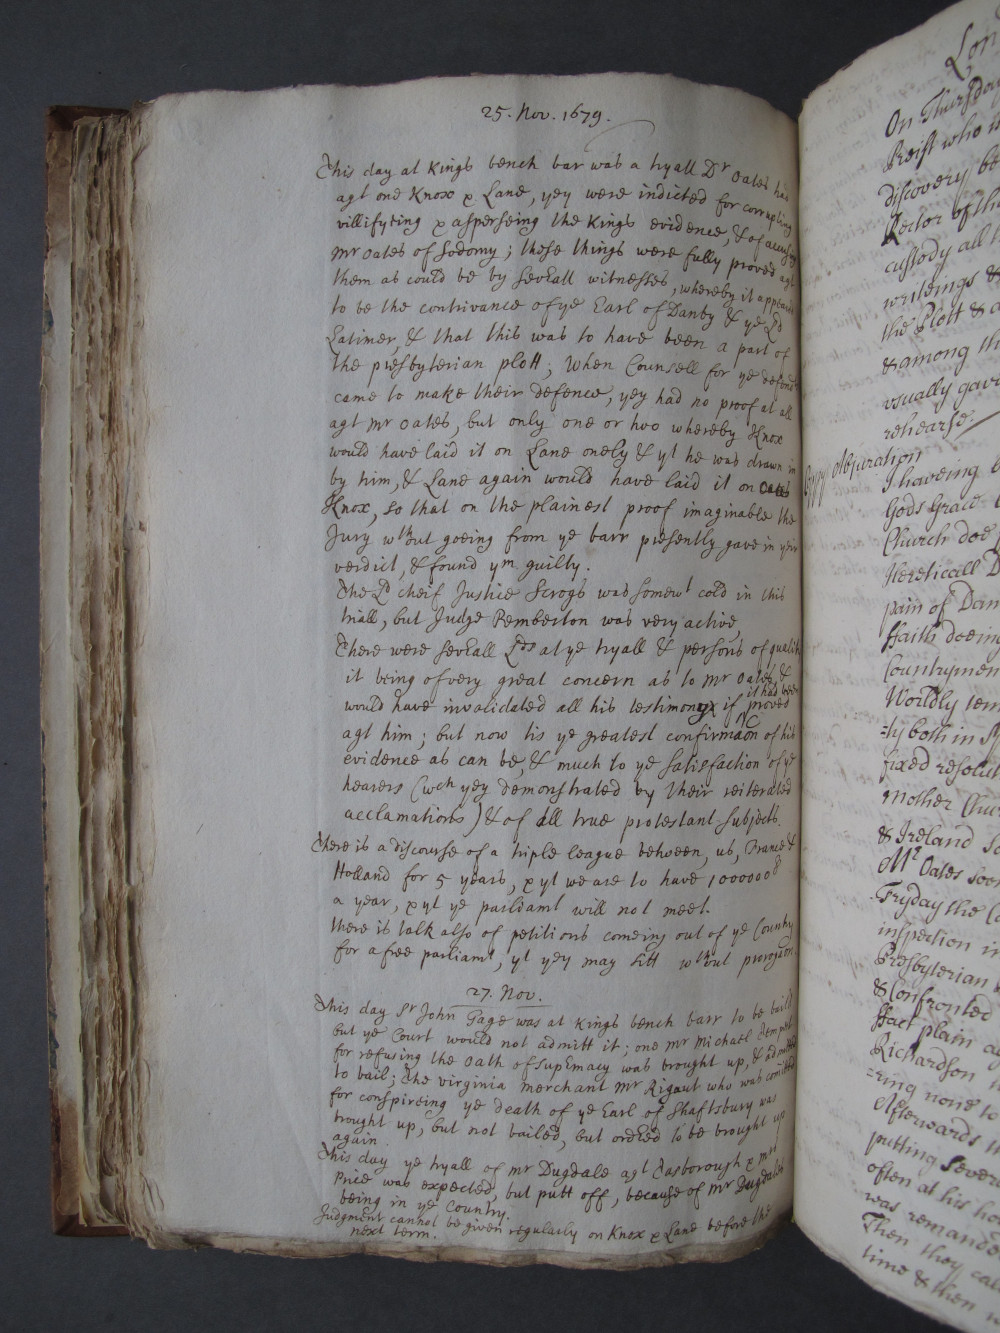 25. Nov. 1679.
This day at Kings bench bar was a tryall Dr Oates had
agt one Knox & Lane, yey were indicted for corrupting
villifyeing & asperseing the Kings evidence, & of accusing
Mr Oates of Sodomy; these things were fully proved agt
them as could be by severall witnesses, whereby it appeared
to be the contrivance of ye Earl of Danby & ye Ld
Latimer, & that this was to have been a part of
the presbyterian plott; When Counsell for ye defend
came to make their defence, yey had no proof at all
agt Mr Oates, but only one or two whereby Knox
would have laid it on Lane onely & yt he was drawn in
by him, & Lane again would have laid it on
Knox, so that on the plainest proof imaginable the
Jury wthout goeing from ye barr presently gave in their
verdict, & found ym guilty.
The Ld cheif Justice Scrogs was somewt cold in this
triall, but Judge Pemberton was very active
There were severall Lds at ye tryall & persons of quality
it being of very great concern as to Mr Oates, &
would have invalidated all his testimony if it had been proved
agt him; but now tis ye greatest confirmaon of his
evidence as can be, & much to ye satisfaction of ye
hearers (wch yey demonstrated by their reiterated
acclamations) & of all true protestant subjects.
There is a discourse of a triple league between, us, France &
Holland for 5 years, & yt we are to have 1000000
a year, & yt ye parliamt will not meet.
there is talk also of petitions comeing out of ye Country
for a free parliamt, yt yey may sitt wthout prorogaon
27. Nov.
This day Sr John Gage was at Kings bench barr to be baild
but ye Court would not admitt it; one Mr Michael Tempest
for refusing the oath of supremacy was brought up, & admitted
to bail; The virginia merchant Mr Rigaut who was comitted
for conspireing ye death of ye Earl of Shaftsbury was
brought up, but not bailed, but ordered to be brought up
again
This day ye tryall of Mr Dugdale agt Tasborough & Mrs
Price was expected, but putt off, because of Mr Dugdales
being in ye Country.
Judgment cannot be given regularly on Knox & Lane before the
next term.
Lon
On Thursday
Preist who
discovery
Rector of the
custody all
writeings &
the Plott &
& among
usually gave
rehearse
Abjuration
I haveing
Gods Grace
Church doe
Hereticall
pain of Dam
Faith doeing
Countrymen
Worldly
ly both in
fixed resolut
Mother Chur
& Ireland
Mr Oates
Fryday the
inspection in
Presbyterian
& Confronted
Fact plain
Richardson
ring none to
Afterwards
putting Sever
often at his
was remanded
Then they
time & then